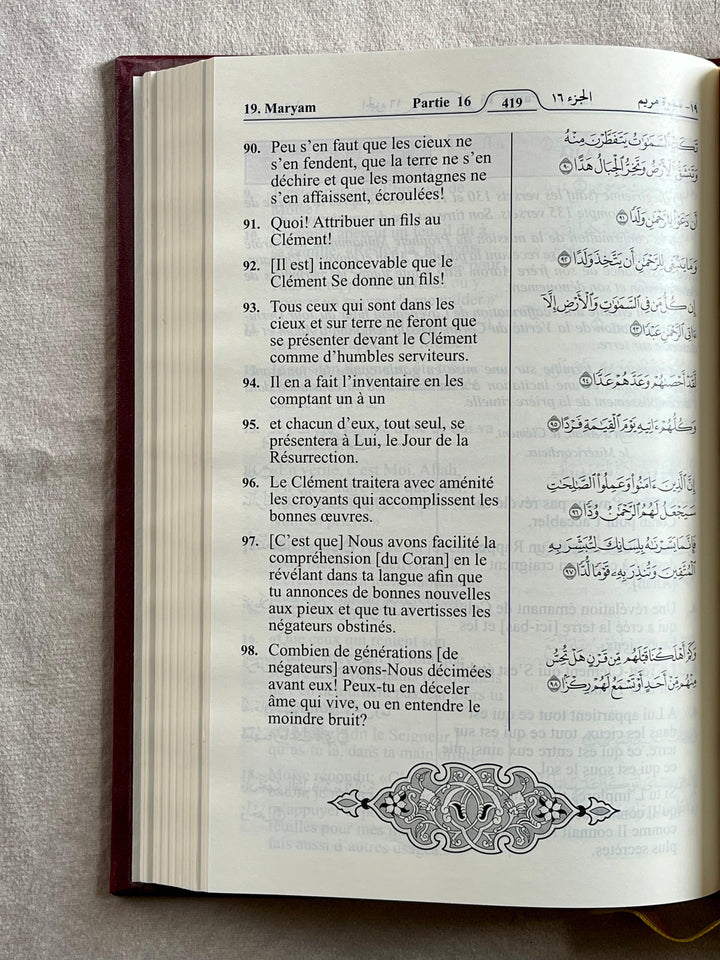 19. Maryam Partie 16 419 الجزء ١٦ ١٩- سورة مريم
90. Peu s’en faut que les cieux ne
s’en fendent, que la terre ne s’en
déchire et que les montagnes ne
s’en affaissent, écroulées!
91. Quoi! Attribuer un fils au
Clément!
92. [Il est] inconcevable que le
Clément Se donne un fils!
93. Tous ceux qui sont dans les
cieux et sur terre ne feront que
se présenter devant le Clément
comme d’humbles serviteurs.
94. Il en a fait l’inventaire en les
comptant un à un
95. et chacun d’eux, tout seul, se
présentera à Lui, le Jour de la
Résurrection.
96. Le Clément traitera avec aménité
les croyants qui accomplissent les
bonnes œuvres.
97. [C’est que] Nous avons facilité la
compréhension [du Coran] en le
révélant dans ta langue afin que
tu annonces de bonnes nouvelles
aux pieux et que tu avertisses les
négateurs obstinés.
98. Combien de générations [de
négateurs] avons-Nous décimées
avant eux! Peux-tu en déceler
âme qui vive, ou en entendre le
moindre bruit?
تَكَادُ ٱلسَّمَٰوَٰتُ يَتَفَطَّرْنَ مِنْهُ
وَتَنشَقُّ ٱلْأَرْضُ وَتَخِرُّ ٱلْجِبَالُ هَدًّا ٩٠
أَن دَعَوْا۟ لِلرَّحْمَٰنِ وَلَدًا ٩١
وَمَا يَنۢبَغِى لِلرَّحْمَٰنِ أَن يَتَّخِذَ وَلَدًا ٩٢
إِن كُلُّ مَن فِى ٱلسَّمَٰوَٰتِ وَٱلْأَرْضِ إِلَّآ
ءَاتِى ٱلرَّحْمَٰنِ عَبْدًا ٩٣
لَّقَدْ أَحْصَىٰهُمْ وَعَدَّهُمْ عَدًّا ٩٤
وَكُلُّهُمْ ءَاتِيهِ يَوْمَ ٱلْقِيَٰمَةِ فَرْدًا ٩٥
إِنَّ ٱلَّذِينَ ءَامَنُوا۟ وَعَمِلُوا۟ ٱلصَّٰلِحَٰتِ
سَيَجْعَلُ لَهُمُ ٱلرَّحْمَٰنُ وُدًّا ٩٦
فَإِنَّمَا يَسَّرْنَٰهُ بِلِسَانِكَ لِتُبَشِّرَ بِهِ
ٱلْمُتَّقِينَ وَتُنذِرَ بِهِۦ قَوْمًا لُّدًّا ٩٧
وَكَمْ أَهْلَكْنَا قَبْلَهُم مِّن قَرْنٍ هَلْ تُحِسُّ
مِنْهُم مِّنْ أَحَدٍ أَوْ تَسْمَعُ لَهُمْ رِكْزًا ٩٨